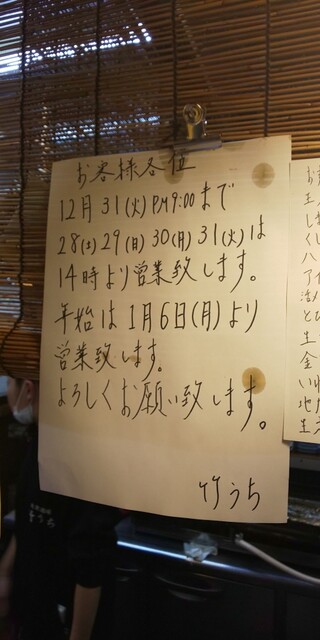 お客様各位
12月31(火)PM9:00まで
28(土)29(日)30(月)31(火)は
14時より営業致します。
年始は1月6日(月)より
営業致します。
よろしくお願い致します。
竹うち